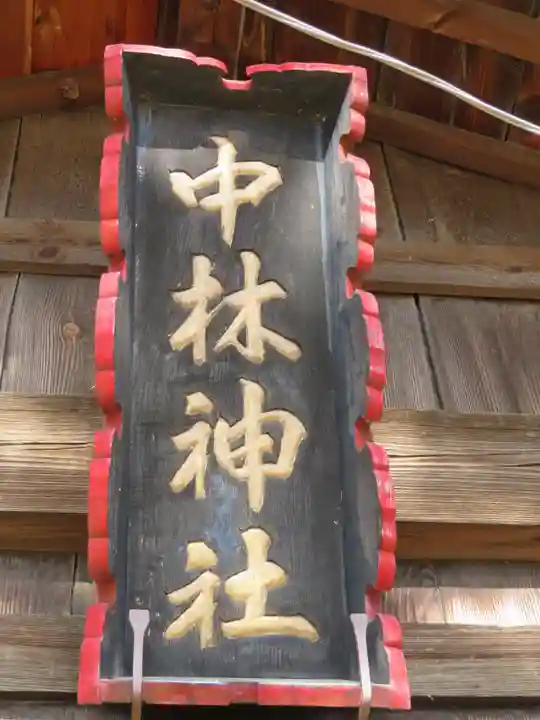 中林神社